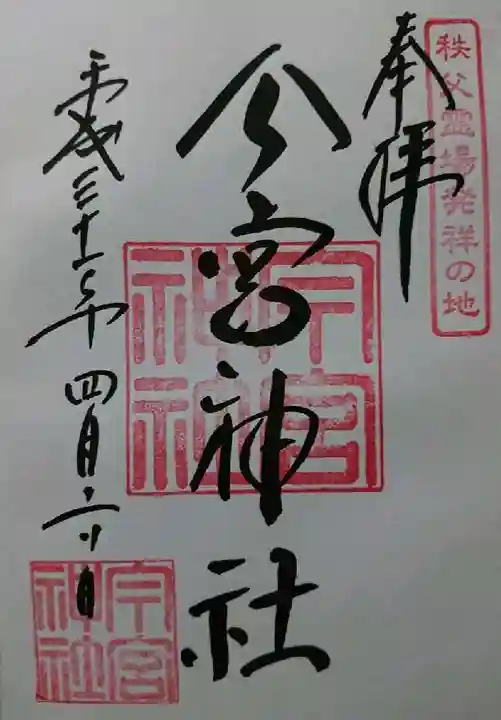 秩父霊場発祥の地
奉拝
今宮神社
今宮神社
平成三十一年四月日
今宮神社